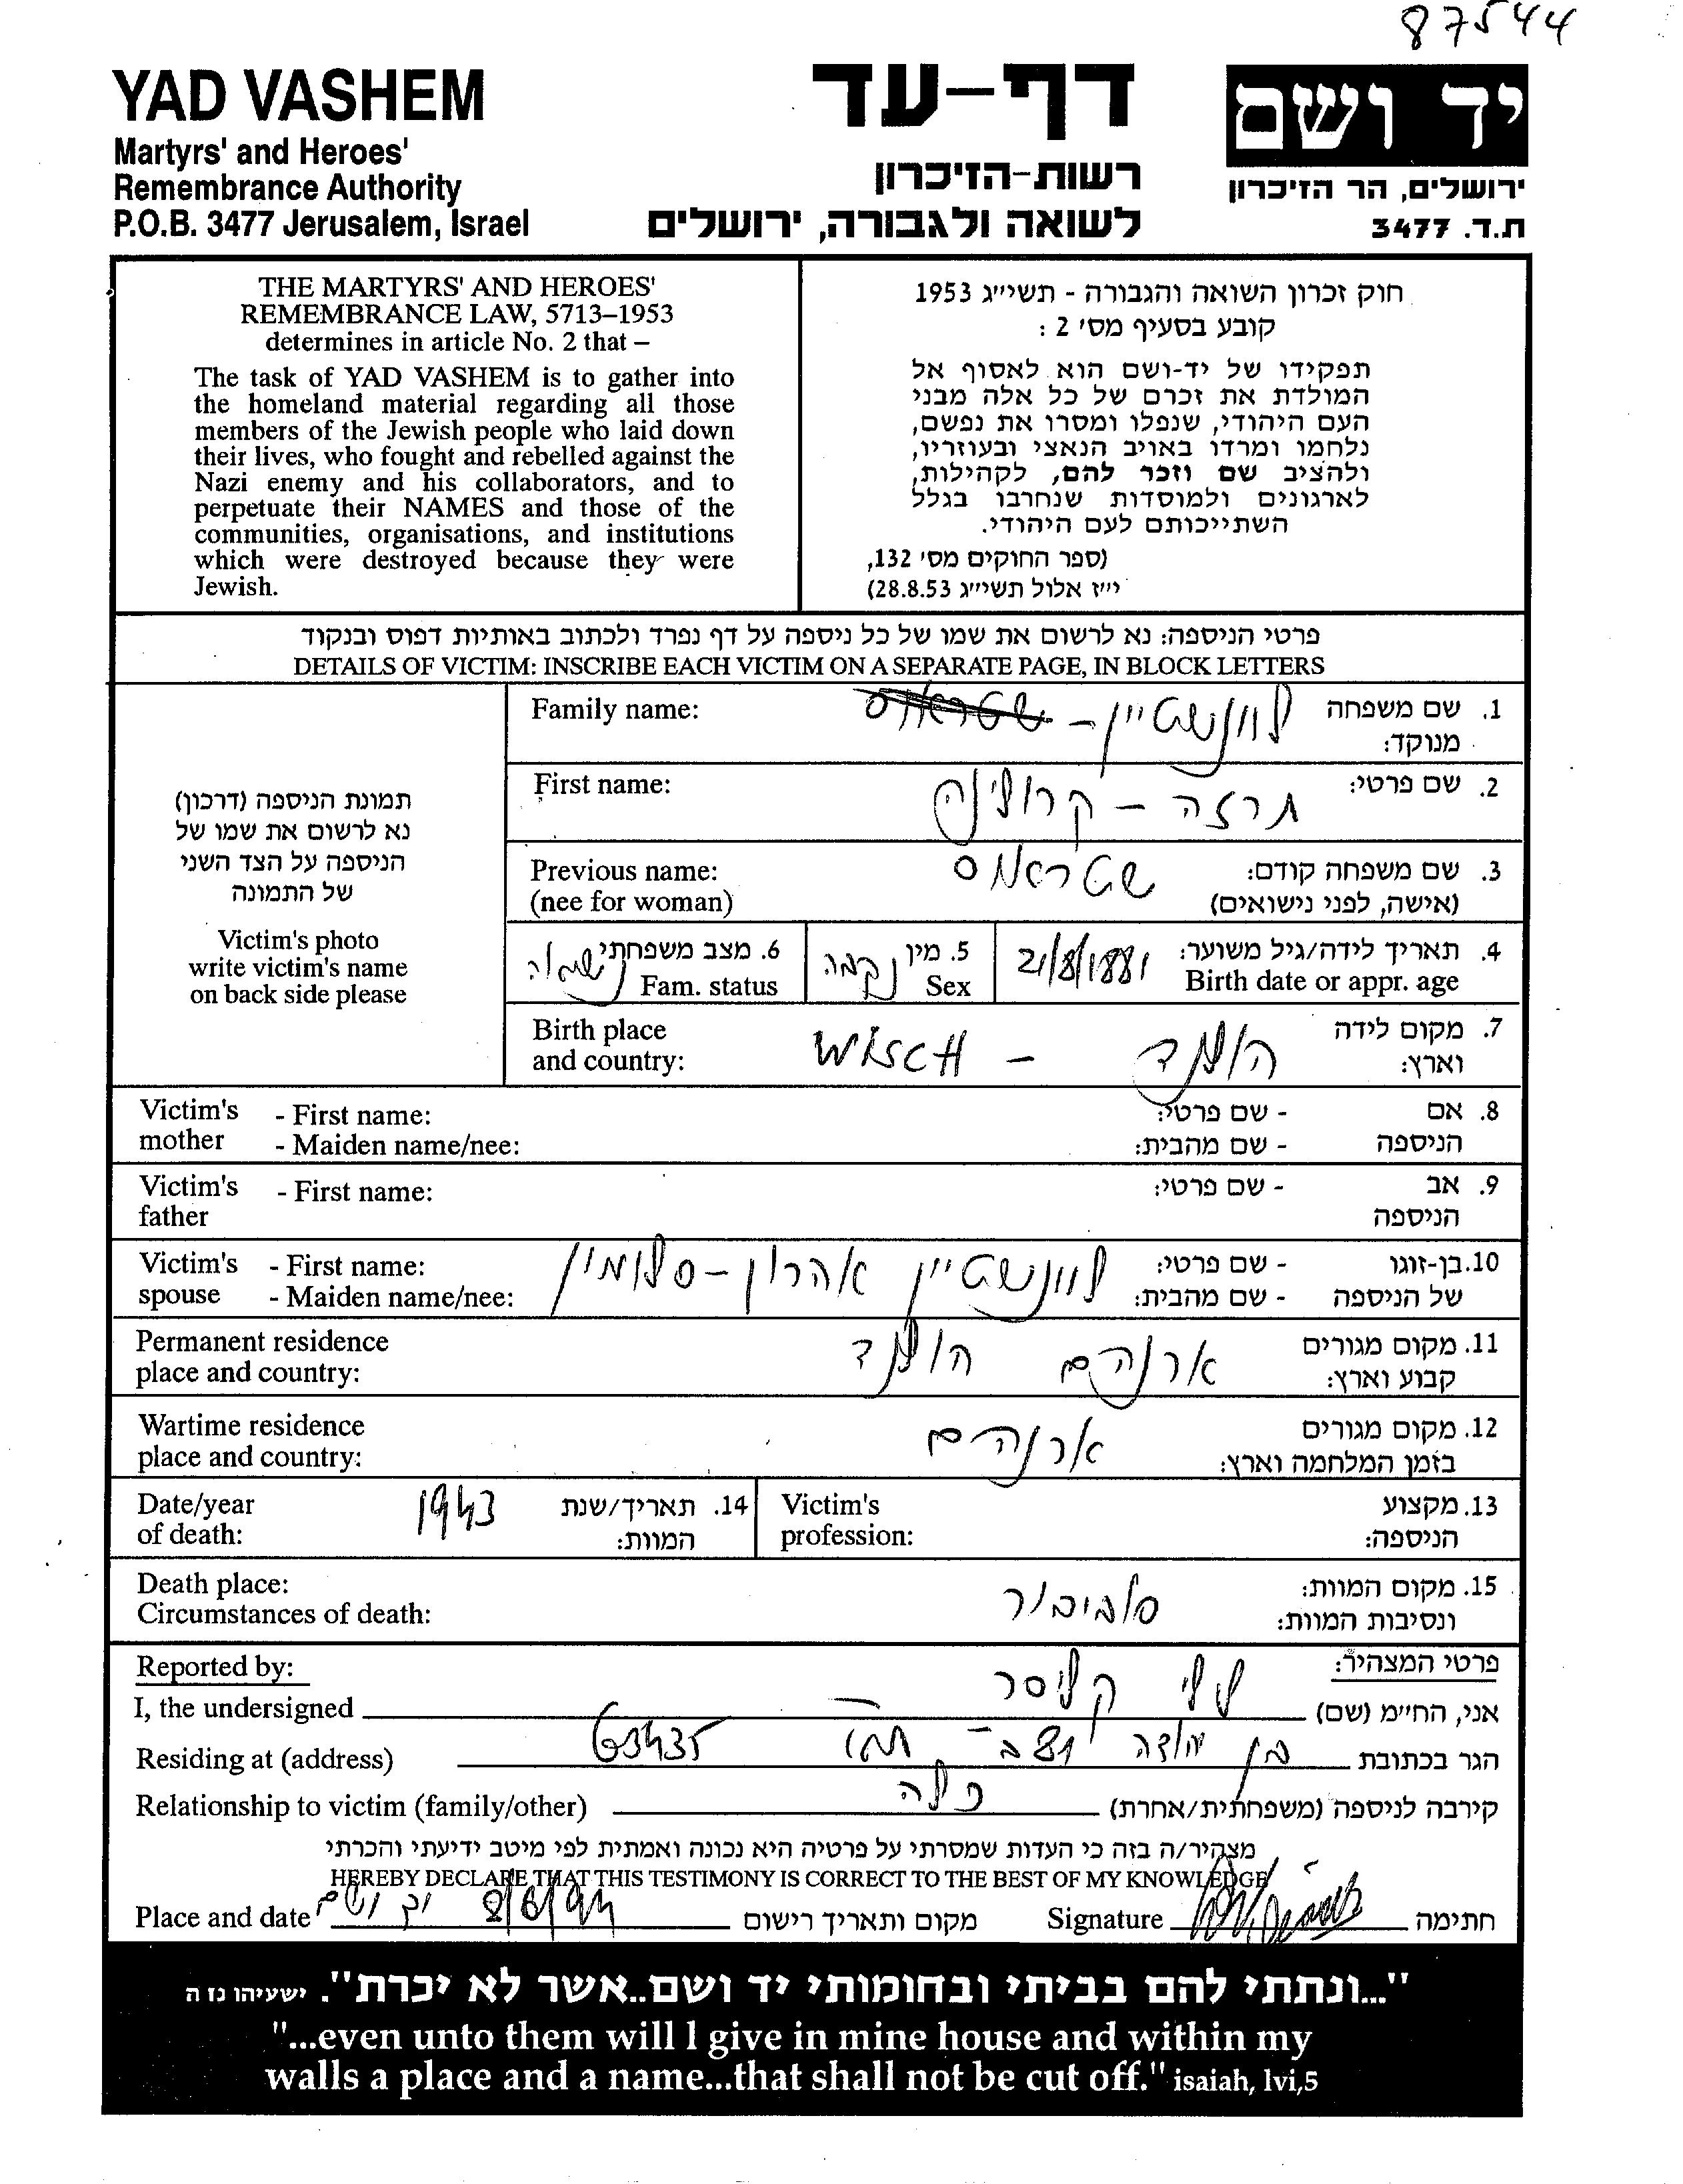 87544
YAD VASHEM
Martyrs' and Heroes'
Remembrance Authority
P.O.B. 3477 Jerusalem, Israel
דף-עד
רשות-הזיכרון
לשואה ולגבורה, ירושלים
יד ושם
ירושלים, הר הזיכרון
ת.ד. 3477
THE MARTYRS' AND HEROES'
REMEMBRANCE LAW, 5713–1953
determines in article No. 2 that –
The task of YAD VASHEM is to gather into
the homeland material regarding all those
members of the Jewish people who laid down
their lives, who fought and rebelled against the
Nazi enemy and his collaborators, and to
perpetuate their NAMES and those of the
communities, organisations, and institutions
which were destroyed because they were
Jewish.
חוק זכרון השואה והגבורה - תשי״ג 1953
קובע בסעיף מס׳ 2 :
תפקידו של יד-ושם הוא לאסוף אל
המולדת את זכרם של כל אלה מבני
העם היהודי, שנפלו ומסרו את נפשם,
נלחמו ומרדו באויב הנאצי ובעוזריו,
ולהציב שם וזכר להם, לקהילות,
לארגונים ולמוסדות שנחרבו בגלל
השתייכותם לעם היהודי.
(ספר החוקים מס׳ 132,
י״ז אלול תשי״ג 28.8.53)
פרטי הניספה: נא לרשום את שמו של כל ניספה על דף נפרד ולכתוב באותיות דפוס ובנקוד
DETAILS OF VICTIM: INSCRIBE EACH VICTIM ON A SEPARATE PAGE, IN BLOCK LETTERS
תמונת הניספה (דרכון)
נא לרשום את שמו של
הניספה על הצד השני
של התמונה
Victim's photo
write victim's name
on back side please
Family name: לוונשטיין - שטראוס 1. שם משפחה
מנוקד:
First name: תרזה - קרולינה 2. שם פרטי:
Previous name: שטראוס 3. שם משפחה קודם:
(nee for woman) (אישה, לפני נישואים)
6. מצב משפחתי נשואה 5. מין נקבה 21/8/1881 4. תאריך לידה/גיל משוער:
Fam. status Sex Birth date or appr. age
Birth place WISCH - הולנד 7. מקום לידה
and country: וארץ:
Victim's - First name: - שם פרטי: 8. אם
mother - Maiden name/nee: - שם מהבית: הניספה
Victim's - First name: - שם פרטי: 9. אב
father הניספה
Victim's - First name: לוונשטיין אהרון-סלומון - שם פרטי: 10. בן-זוגו
spouse - Maiden name/nee: - שם מהבית: של הניספה
Permanent residence ארנהם הולנד 11. מקום מגורים
place and country: קבוע וארץ:
Wartime residence ארנהם 12. מקום מגורים
place and country: בזמן המלחמה וארץ:
Date/year 1943 14. תאריך/שנת Victim's 13. מקצוע
of death: המוות: profession: הניספה:
Death place: סוביבור 15. מקום המוות:
Circumstances of death: ונסיבות המוות:
Reported by: פרטי המצהיר:
I, the undersigned לילי קליסר אני, החי״מ (שם)
Residing at (address) בן יהודה ת״א 63435 הגר בכתובת
Relationship to victim (family/other) כלה קירבה לניספה (משפחתית/אחרת)
מצהיר/ה בזה כי העדות שמסרתי על פרטיה היא נכונה ואמתית לפי מיטב ידיעתי והכרתי
HEREBY DECLARE THAT THIS TESTIMONY IS CORRECT TO THE BEST OF MY KNOWLEDGE
Place and date יד ושם 8/6/94 מקום ותאריך רישום Signature חתימה
"...ונתתי להם בביתי ובחומותי יד ושם..אשר לא יכרת". ישעיהו נז ה
"...even unto them will I give in mine house and within my
walls a place and a name...that shall not be cut off." isaiah, lvi,5